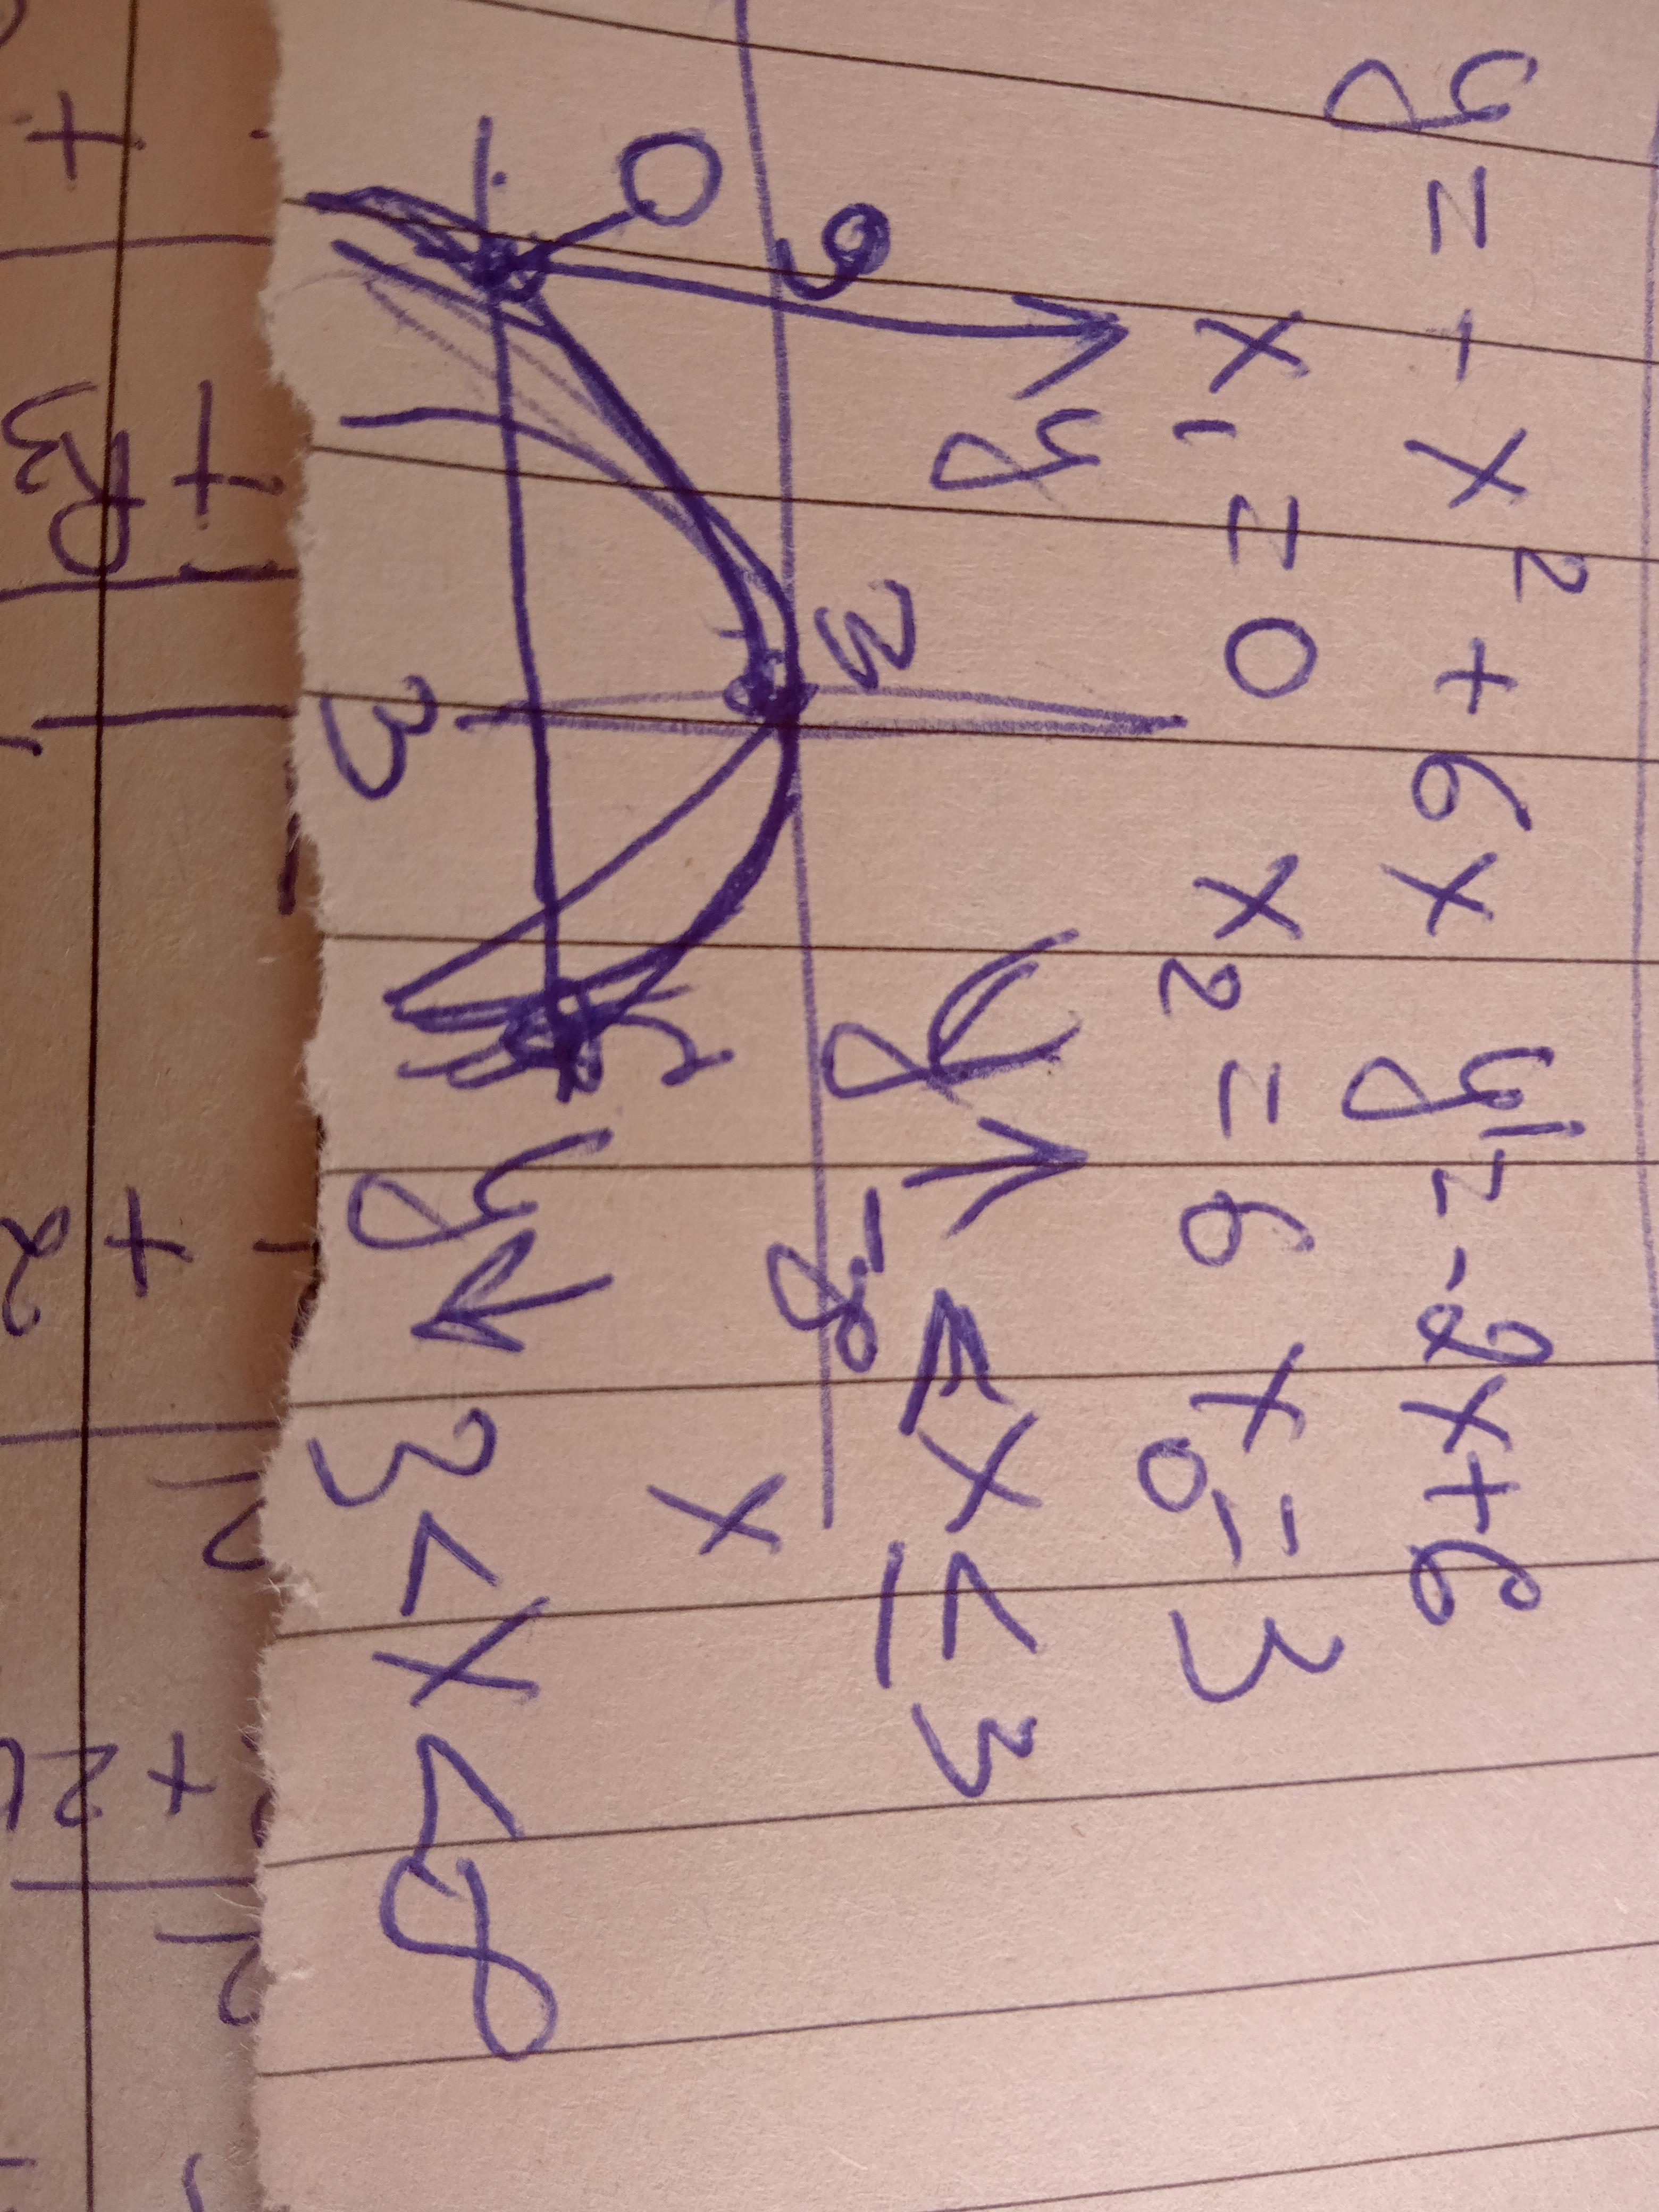 y = -x² + 6x y' = -2x+6
x₁ = 0 x₂ = 6 x₀ = 3
y
y ↑ -∞ < x ≤ 3
9
3
x
0
6
y ↓ 3 < x < ∞
3
+
+R3
+
+2
+2